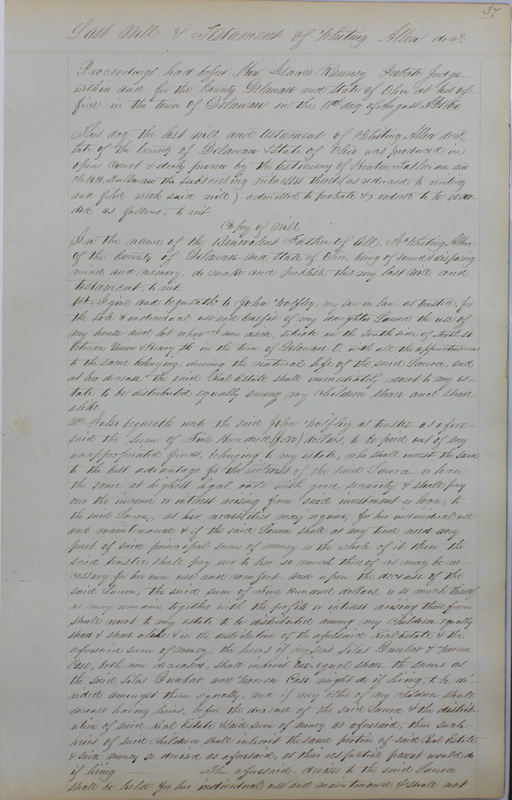 37
Last Will & Testament of Whiting Allen decd.
Proceedings had before Hon Isaac Ranney Probate Judge
within and for the County Delaware and State of Ohio at his of
fice in the town of Delaware on the 11th day of August
This day the last will and testament of Whiting Allen decd
late of the County of Delaware & State of Ohio was produced in
open Court & duly proven by the testimony of
the subscribing witnesses thereto as reduced to writing
and filed with said will) admitted to probate & ordered to be recor
ded as follows, to wit.
Copy of Will
In the name of the Benevolent Father of all, I Whiting Allen
of the County of Delaware and State of Ohio, being of sound & disposing
mind and memory, do make and publish this my last will and
testament, to wit.
1st I give and bequeath to John Wolfley, my son in law as trustee, for
the sole & individual use and benefit of my daughter Laura the use of
my house and lot where I now reside, situate on the South side of
between Union & Henry Sts in the town of Delaware O, with all the appurtenances
to the same belonging, during the natural life of the said Laura, and
at her decease the said Real Estate shall immediately revert to my es-
tate to be distributed equally among my children share and share
alike
2nd I also bequeath unto the said John Wolfley as trustee as afore
said the sum of Five Hundred (500) dollars, to be paid out of my
unappropriated funds, belonging to my estate, who shall invest the same
to the best advantage for the interest of the said Laura or loan
the same at highest legal rate with good security & shall pay
over the income or interest arising from said investment or loan, to
the said Laura, as her necessities may require, for her individual use
and maintenance & if the said Laura shall at any time need any
part of said principal sum of money or the whole of it then the
said trustee shall pay over to her so much thereof as may be ne-
cessary for her own use and comfort, and upon the decease of the
said Laura, the said sum of Five Hundred dollars, or so much thereof
as may remain together with the profits or interest arising therefrom
shall revert to my estate to be distributed among my children equally
share & share alike & in the distribution of the aforesaid Real Estate & the
aforesaid sum of money, the heirs of my sons Silas Dunbar & Warren
Case, both now deceased, shall inherit one equal share the same as
the said Silas Dunbar and Warren Case might do if living, to be di-
vided amongst them equally, and if any other of my children shall
decease having heirs, before the decease of the said Laura & the distribu
tion of said Real Estate & said sum of money as aforesaid, then such
heirs of said children shall inherit the same portion of said Real Estate
& said money so devised as aforesaid, as their respective parent would do
if living The aforesaid devise to the said Laura
shall be held for her individual use and maintenance & shall not